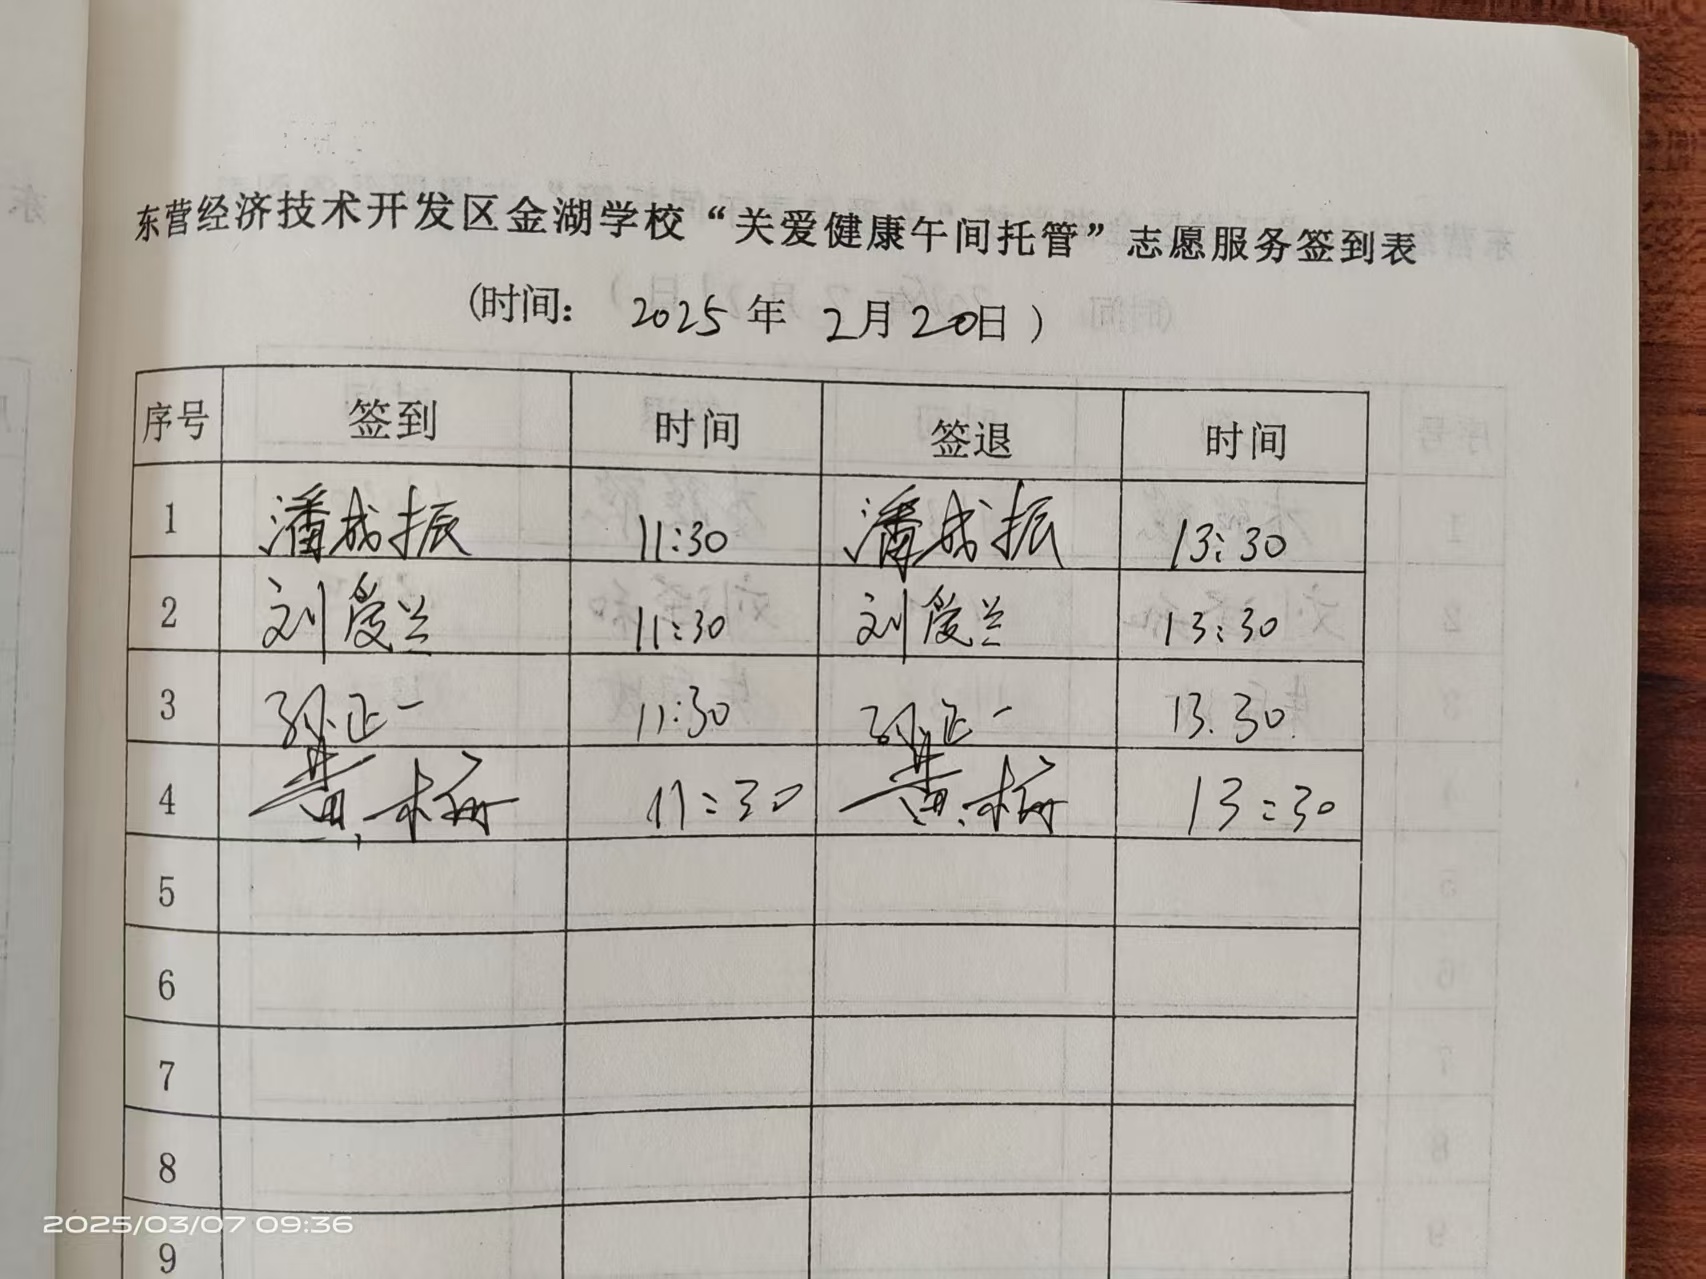 东营经济技术开发区金湖学校“关爱健康午间托管”志愿服务签到表
(时间: 2025年 2月20日)
序号 签到 时间 签退 时间
1 潘成振 11:30 潘成振 13:30
2 刘爱兰 11:30 刘爱兰 13:30
3 孙正一 11:30 孙正一 13.30.
4 黄梅 11:30 黄梅 13:30
5
6
7
8
9
2025/03/07 09:36